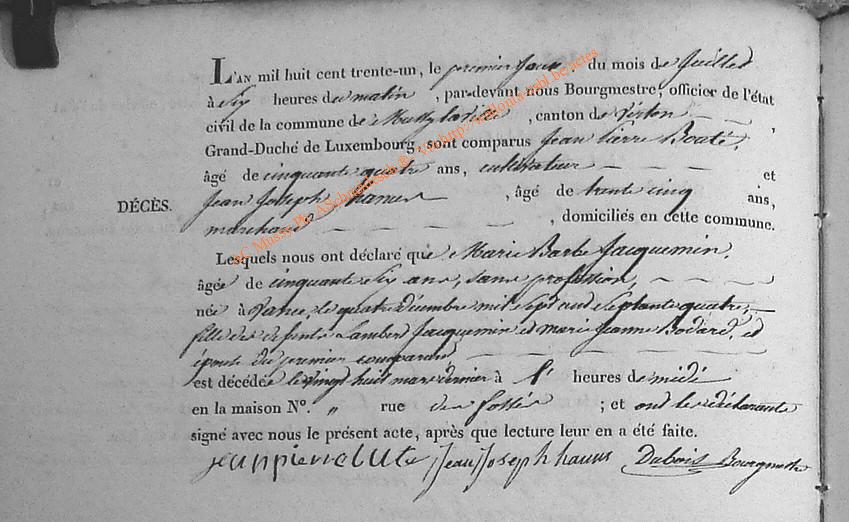 L'AN mil huit cent trente-un, le premier jour, du mois de Juillet
à Six heures de matin, par-devant nous Bourgmestre, officier de l'état
civil de la commune de Mussy la ville, canton de Virton,
Grand-Duché de Luxembourg, sont comparus Jean Pierre
âgé de cinquante quatre ans, cultivateur et
Jean Joseph, âgé de trente cinq ans,
DÉCÈS.
marchand, domiciliés en cette commune.
Lesquels nous ont déclaré que Marie Barbe Jacquemin,
âgée de cinquante Six ans, sans profession,
née à Vance, le quatre décembre mil Sept cent Septante quatre,
fille des défunts Lambert Jacquemin et marie jeanne Bodard, et
épouse du premier comparant
est décédée le vingt huit mars dernier à heures de midi
en la maison N°. „ rue des fossés ; et ont les déclarants
signé avec nous le présent acte, après que lecture leur en a été faite.
jean pierre Jean Joseph Dubois Bourgmestre